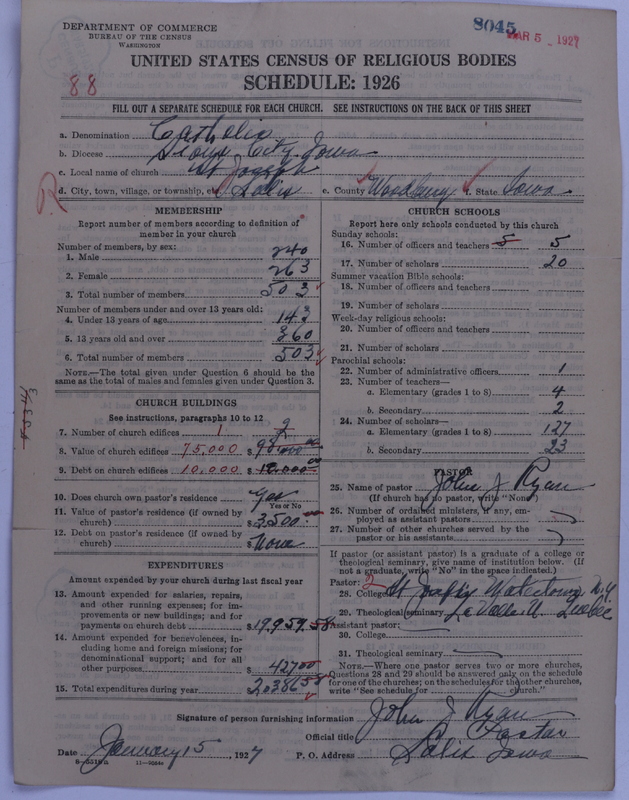 DEPARTMENT OF COMMERCE
BUREAU OF THE CENSUS
WASHINGTON
8045
MAR 5 - 1927
88
UNITED STATES CENSUS OF RELIGIOUS BODIES
SCHEDULE: 1926
FILL OUT A SEPARATE SCHEDULE FOR EACH CHURCH. SEE INSTRUCTIONS ON THE BACK OF THIS SHEET
a. Denomination Catholic
b. Diocese Sioux City Iowa
c. Local name of church St Joseph
d. City, town, village, or township, etc. Salix e. County Woodbury f. State Iowa
MEMBERSHIP
Report number of members according to definition of member in your church
Number of members, by sex:
1. Male 240
2. Female 263
3. Total number of members 503
Number of members under and over 13 years old:
4. Under 13 years of age 143
5. 13 years old and over 360
6. Total number of members 503
NOTE.—The total given under Question 6 should be the same as the total of males and females given under Question 3.
CHURCH BUILDINGS
See instructions, paragraphs 10 to 12
7. Number of church edifices 1 2
8. Value of church edifices 75,000 $
9. Debt on church edifices 10,000 $
10. Does church own pastor's residence Yes
Yes or No
11. Value of pastor's residence (if owned by church) $3500
12. Debt on pastor's residence (if owned by church) $ None
EXPENDITURES
Amount expended by your church during last fiscal year
13. Amount expended for salaries, repairs, and other running expenses; for improvements or new buildings; and for payments on church debt $19,959.58
14. Amount expended for benevolences, including home and foreign missions; for denominational support; and for all other purposes $427.00
15. Total expenditures during year $20386.58
CHURCH SCHOOLS
Report here only schools conducted by this church
Sunday schools:
16. Number of officers and teachers 5 5
17. Number of scholars 20
Summer vacation Bible schools:
18. Number of officers and teachers
19. Number of scholars
Week-day religious schools:
20. Number of officers and teachers
21. Number of scholars
Parochial schools:
22. Number of administrative officers 1
23. Number of teachers—
a. Elementary (grades 1 to 8) 4
b. Secondary 2
24. Number of scholars—
a. Elementary (grades 1 to 8) 127
b. Secondary 23
PASTOR
25. Name of pastor John J Ryan
(If church has no pastor, write "None")
26. Number of ordained ministers, if any, employed as assistant pastors
27. Number of other churches served by the pastor or his assistants
If pastor (or assistant pastor) is a graduate of a college or theological seminary, give name of institution below. (If not a graduate, write "No" in the space indicated.)
Pastor: 2
28. College Watertown N.Y.
29. Theological seminary La Valle U Quebec
Assistant pastor:
30. College
31. Theological seminary
NOTE.—Where one pastor serves two or more churches, Questions 28 and 29 should be answered only on the schedule for one of the churches; on the schedules for the other churches, write "See schedule for church."
Signature of person furnishing information John J Ryan
Official title Pastor
Date January 15, 1927 P. O. Address Salix Iowa